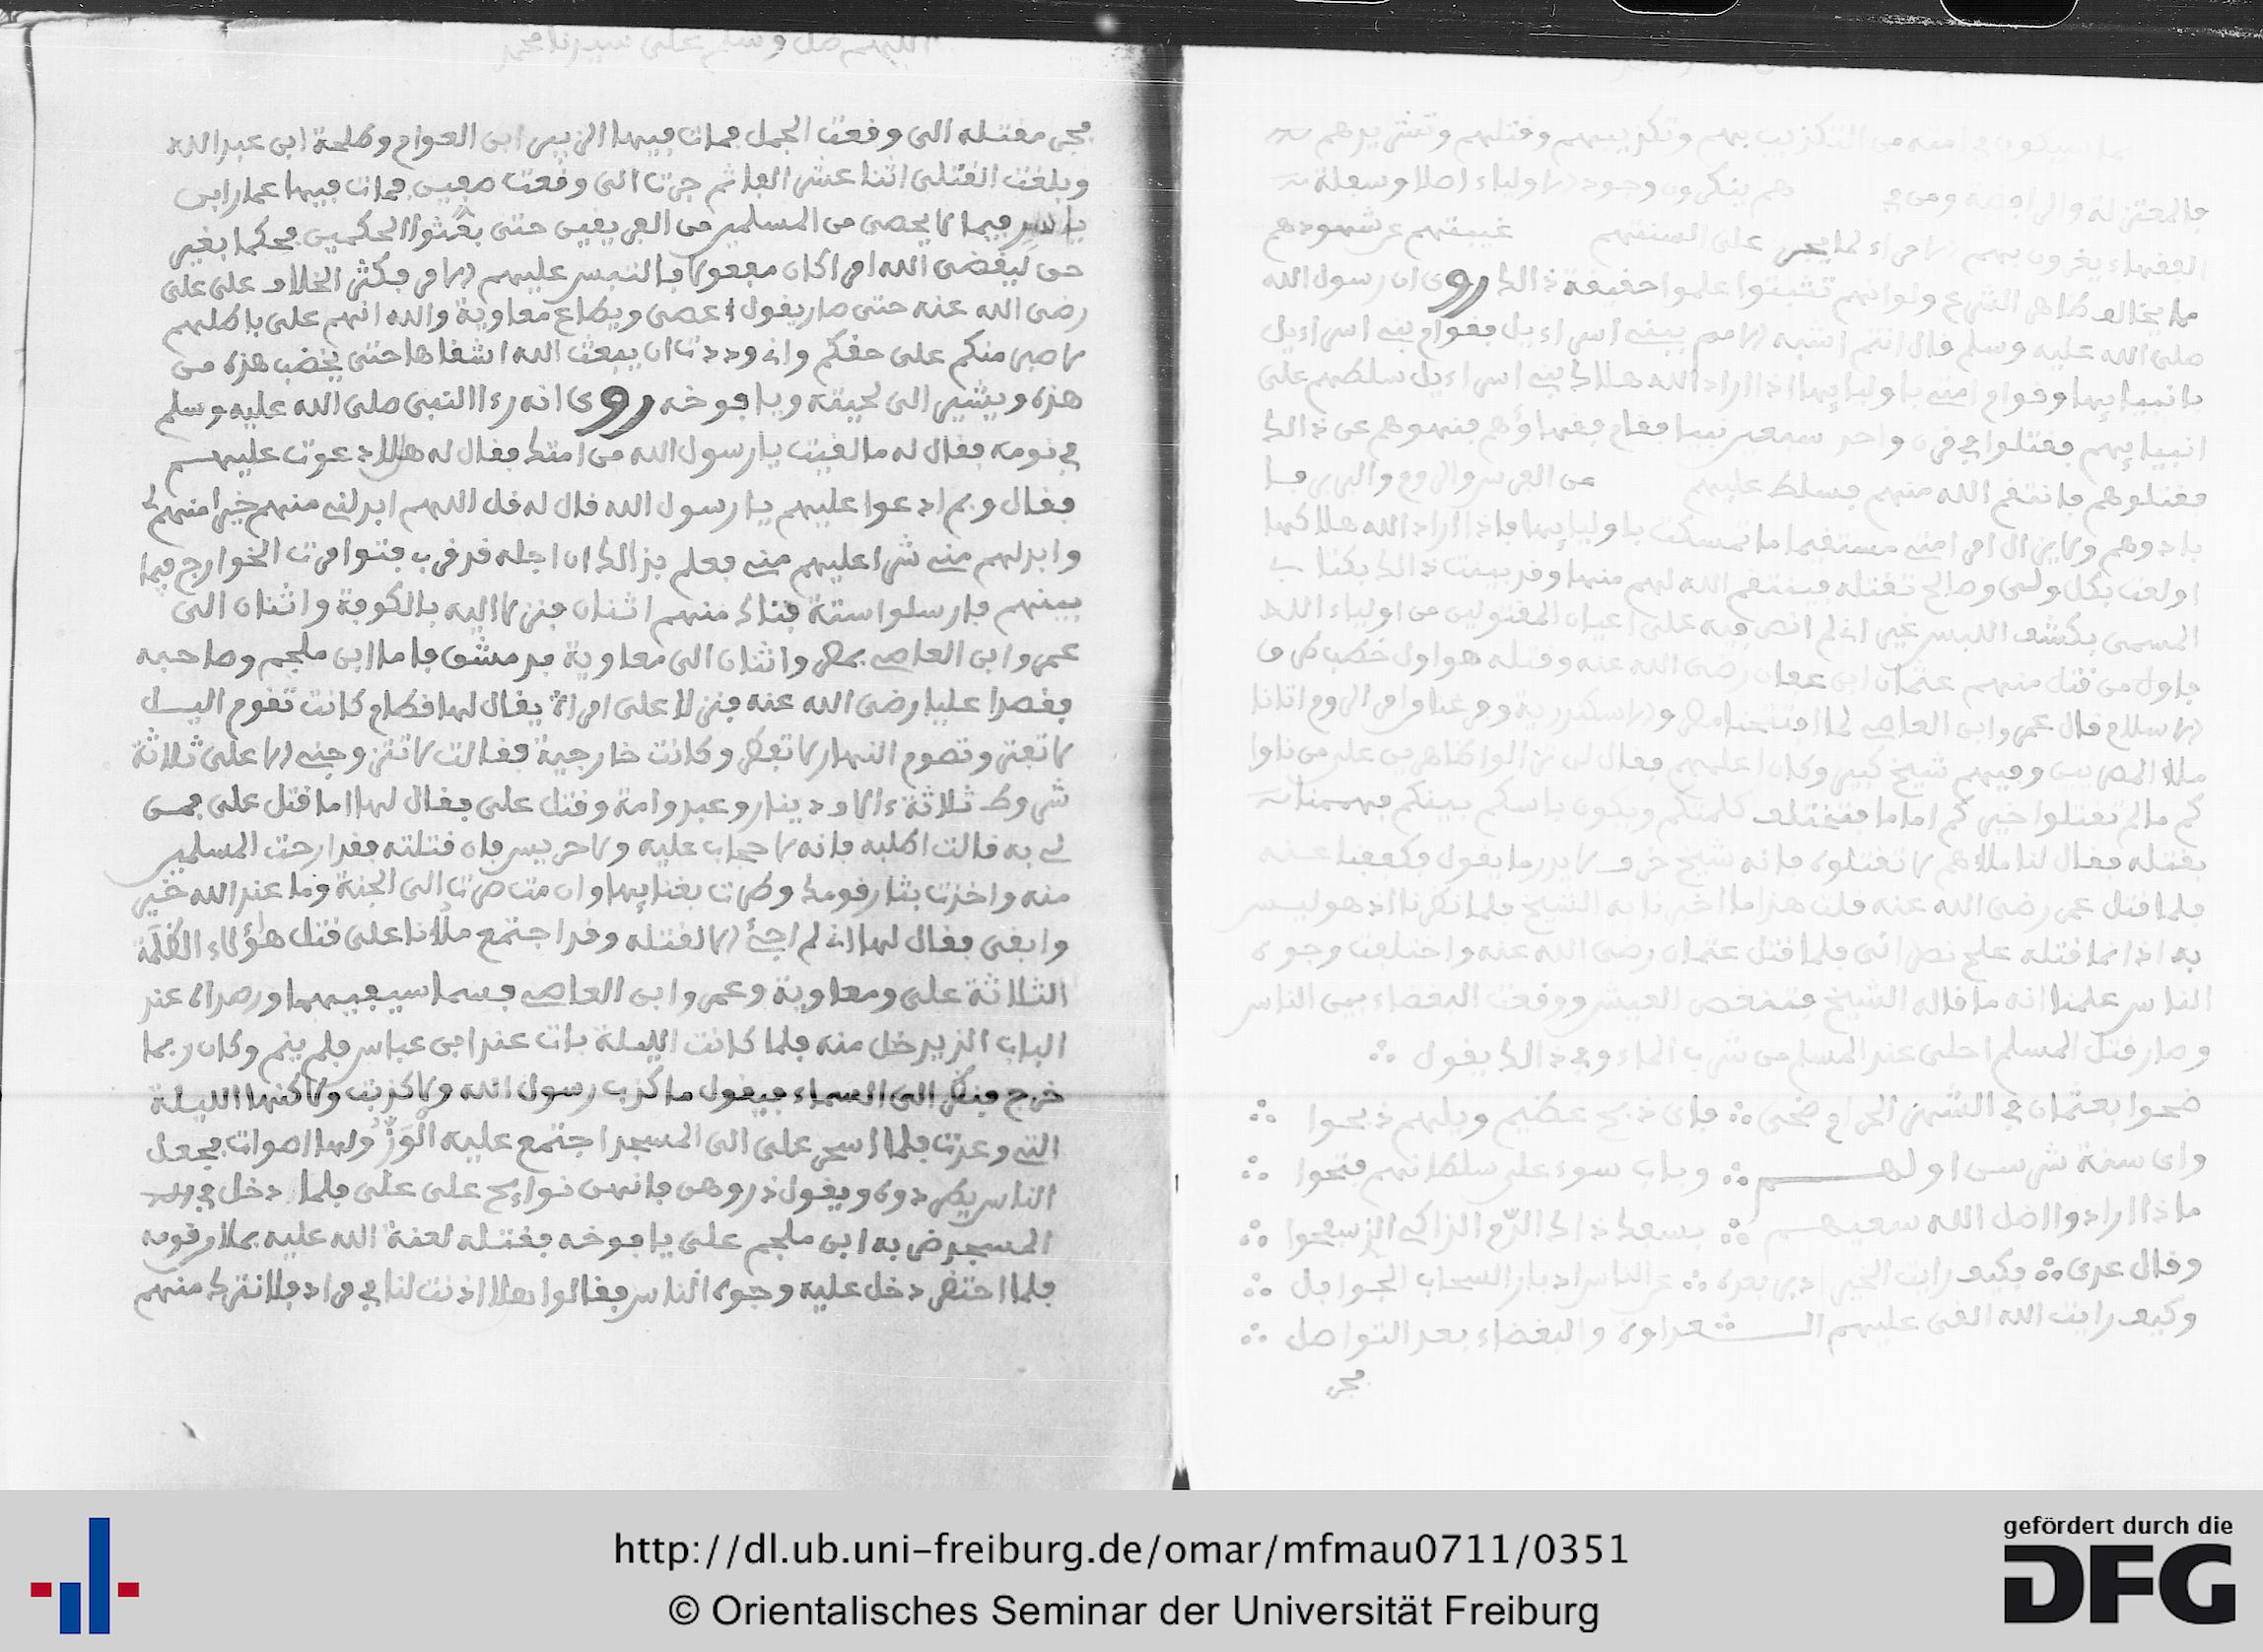 ما سيكون في امته من التكذيب بهم وتكذيبهم وقتلهم وتشريدهم
فالمعتزلة والرافضة ومن في هم ينكرون وجود الاولياء اصلا وسفلة
الفقهاء يغرون بهم الامراء لما يجرى على السنتهم غيبتهم عن شهودهم
مما يخالف ظاهر الشرع ولو انهم تثبتوا علموا حقيقة ذالك روى ان رسول الله
صلى الله عليه وسلم قال انتم اشبه الامم ببنى اسراءيل فقوام بنى اسراءيل
بانبيايها وقوام امتى باوليايها اذا اراد الله هلاك بنى اسراءيل سلطهم على
انبيايهم فقتلوا فى قرن واحد سبعين نبيا فقام فقهاؤهم فنهوهم عن ذالك
فقتلوهم فانتقم الله منهم فسلط عليهم من الفرس والروم والبربر فا
بادوهم ولا يزال امر امتى مستقيما ما تمسكت باوليايها فاذا اراد الله هلاكها
اولعت بكل ولى وصالح تقتله فينتقم الله لهم منها وقد بينت ذالك بكتاب
المسمى بكشف اللبس غير انى لم انص فيه على اعيان المقتولين من اولياء الله
فاول من قتل منهم عثمان ابن عفان رضى الله عنه وقتله هو اول خطب طرق
الاسلام قال عمرو ابن العاصى لما افتتحنا مصر والاسكندرية وفرغنا من امر الروم اتانا
ملأ المصريين وفيهم شيخ كبير وكان اعلمهم فقال لن تزالوا ظاهرين على من ناوا
كم ما لم تقتلوا خيركم اماما فتختلف كلمتكم ويكون باسكم بينكم فهممنا
بقتله فقال لنا ملاهم لا تقتلوه فانه شيخ خرف لا يدر ما يقول فكففنا عنه
فلما قتل عمر رضى الله عنه قلت هذا ما اخبرنا به الشيخ فلما نظرنا اذ هو ليس
به اذ انما قتله علج نصرانى فلما قتل عثمان رضى الله عنه واختلفت وجوه
الناس علمنا انه ما قاله الشيخ فتنغص العيش ووقعت البغضاء بين الناس
وصار قتل المسلم احلى عند المسلم من شرب الماء وفى ذالك يقول ∴
ضحوا بعثمان فى الشهر الحرام ضحى ∴ فاى ذبح عظيم ويلهم ذبحوا ∴
واى سنة شر سن اولهم ∴ وباب سوء على سلطانهم فتحوا ∴
ماذا ارادوا اضل الله سعيهم ∴ بسفك ذاك الدم الزاكى الذ سفحوا ∴
وقال عدى ∴ فكيف رايت الخير ادبر بعده ∴ عن الناس ادبار السحاب الجوافل ∴
وكيف رايت الله القى عليهم العداوة والبغضاء بعد التواصل ∴
فجر
اللهم صل وسلم على سيدنا محمد
فجر مقتله الى وقعت الجمل فمات فيها الزبير ابن العوام وطلحة ابن عبد الله
وبلغت القتلى اثنا عشر الفا ثم جرت الى وقعت صفين فمات فيها عمار ابن
ياسر فيما لا يحصى من المسلمين من الفريقين حتى بعثوا الحكمين فحكما بغير
حق ليقضى الله امرا كان مفعولا فالتبس عليهم الامر فكثر الخلاف على على
رضى الله عنه حتى صار يقول اعصى ويطاع معاوية والله انهم على باطلهم
لاصبر منكم على حقكم وانى وددت ان يبعث الله اشقاها حتى يخضب هذه من
هذه ويشير الى لحيته ويافوخه روى انه رءا النبى صلى الله عليه وسلم
فى نومه فقال له ما لقيت يا رسول الله من امتك فقال له هلا دعوت عليهم
فقال وبم ادعوا عليهم يا رسول الله قال له قل اللهم ابدلنى منهم خيرا منهم لى
وابدلهم منى شرا عليهم منى فعلم بذالك ان اجله قد قرب فتوامرت الخوارج فيما
بينهم فارسلوا ستة فتاك منهم اثنان فنزلا اليه بالكوفة واثنان الى
عمرو ابن العاصى بمصر واثنان الى معاوية بدمشق فاما ابن ملجم وصاحبه
فقصدا عليا رضى الله عنه فنزلا على امراة يقال لها قطام كانت تقوم اليل
لا تفتر وتصوم النهار لا تفطر وكانت خارجية فقالت لا تتزوجنى الا على ثلاثة
شروط ثلاثة ءالاف دينار وعبد وامة وقتل على فقال لها اما قتل على فمن
لى به قالت اطلبه فانه لا حجاب عليه ولا حريس فان قتلته فقد ارحت المسلمين
منه واخذت بثار قومك وظفرت بغنايها وان مت صرت الى الجنة وما عند الله خير
وابقى فقال لها انى لم اجئ الا لقتله وقد اجتمع ملأنا على قتل هؤلاء الظلمة
الثلاثة على ومعاوية وعمرو ابن العاصى فسما سيفيهما ورصداه عند
الباب الذ يدخل منه فلما كانت الليلة بات عند ابن عباس فلم ينم وكان ربما
خرج فنظر الى السماء فيقول ما كذب رسول الله ولا كذبت ولاكنها الليلة
التى وعدت فلما اسحر على الى المسجد اجتمع عليه الوز ولها اصوات فجعل
الناس يطردوه ويقول ذروهن فانهن نوايح على على فلما دخل فى
المسجد ضربه ابن ملجم على يافوخه فقتله لعنة الله عليه بملا قومه
فلما احتضر دخل عليه وجوه الناس فقالوا هلا اذنت لنا فى مراد فلا نترك منهم
http://dl.ub.uni-freiburg.de/omar/mfmau0711/0351
© Orientalisches Seminar der Universität Freiburg
gefördert durch die
DFG